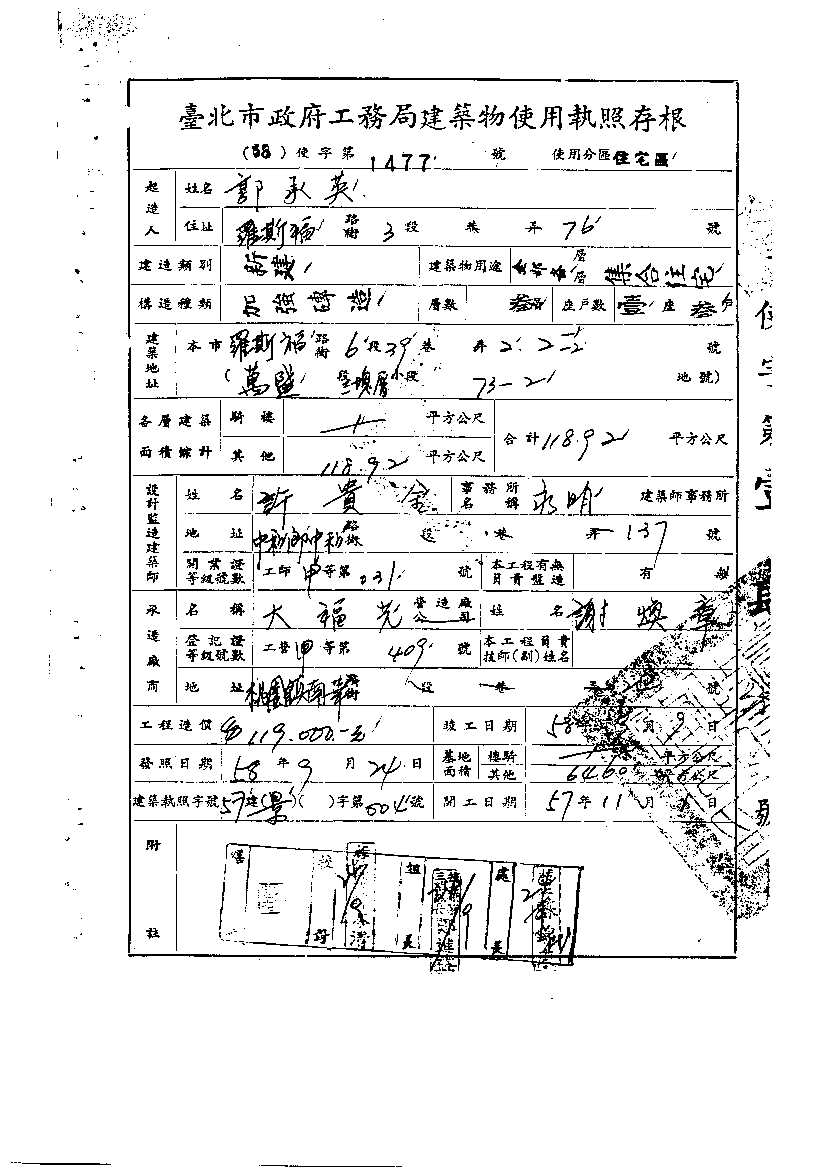 臺北市政府工務局建築物使用執照存根
(58)使字第 1477 號 使用分區 住宅區
起造人 姓名 郭承英
住址 羅斯福 路街 3 段 巷 弄 76 號
建造類別 新建 建築物用途 層層 集合住宅
構造種類 加強磚造 層數 叁 座戶數 壹 座 叁戶
建築地址 本市 羅斯福 路街 6 段 39 巷 弄 2. 2-2 號
(萬盛 段 小段 73-2 地號)
各層建築面積綜計 騎樓 平方公尺
其他 118.92 平方公尺 合計 118.92 平方公尺
設計監造建築師 姓名 許貴 事務所名稱 建築師事務所
地址 中和鄉中和 路街 段 巷 弄 137 號
開業證等級號數 工師 甲 等第 031 號 本工程有無負責監造 有 無
承造廠商 名稱 大福 營造廠公司 姓名 謝煥章
登記證等級號數 工營 甲 等第 409 號 本工程負責技師(副)姓名
地址 桃園鎮南華 路街 段 巷 弄 號
工程造價 119.000.-元 竣工日期 58 月 9 日
發照日期 58 年 9 月 24 日 基地面積 樓騎 平方公尺
其他 64.60 平方公尺
建築執照字號 57 建( )( )字第 604 號 開工日期 57 年 11 月 日
附註